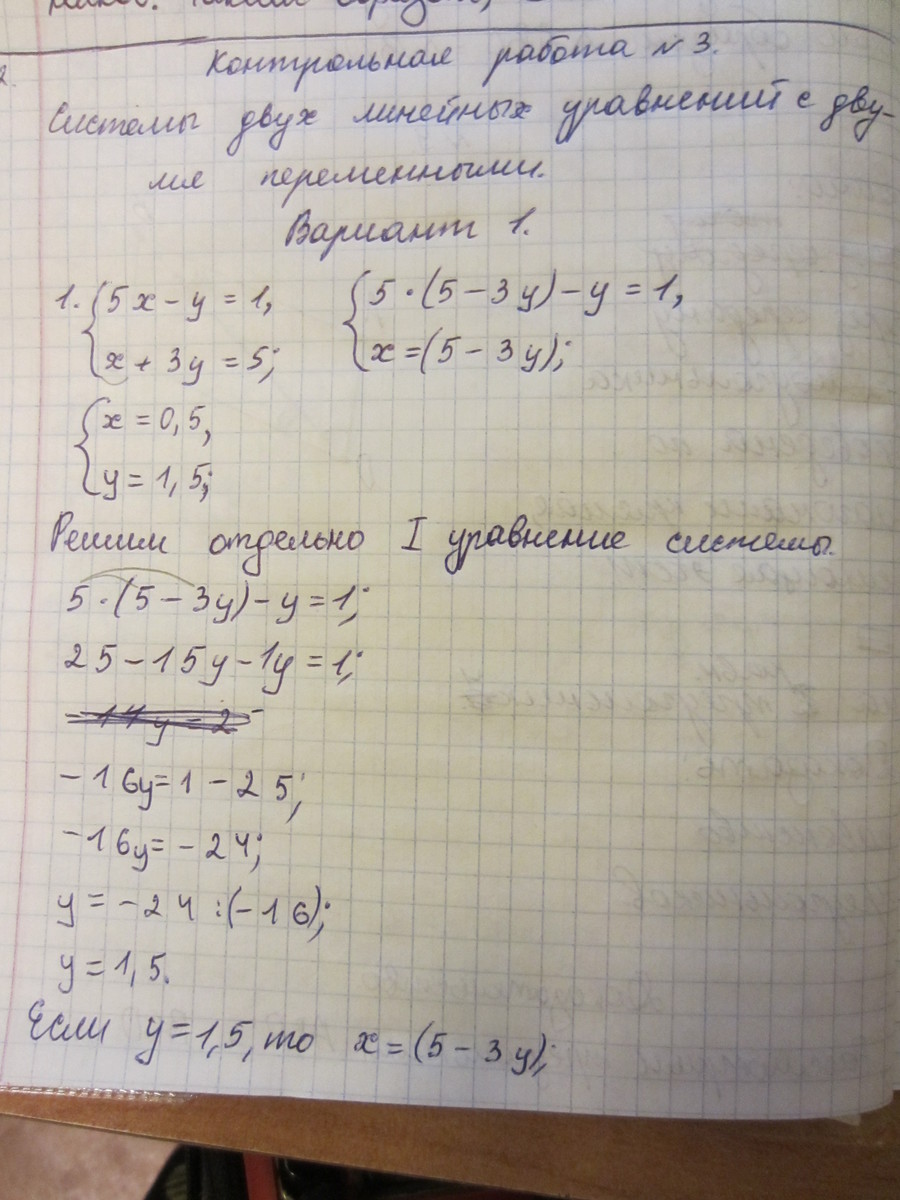 2.
Контрольная работа № 3.
Системы двух линейных уравнений с дву-
мя переменными.
Вариант 1.
1. {5x - y = 1, {5 · (5 - 3y) - y = 1,
x + 3y = 5; x = (5 - 3y);
{x = 0,5,
y = 1,5;
Решим отдельно I уравнение системы.
5 · (5 - 3y) - y = 1;
25 - 15y - 1y = 1;
-16y = 1 - 25;
-16y = -24;
y = -24 : (-16);
y = 1,5.
Если y = 1,5, то x = (5 - 3y);